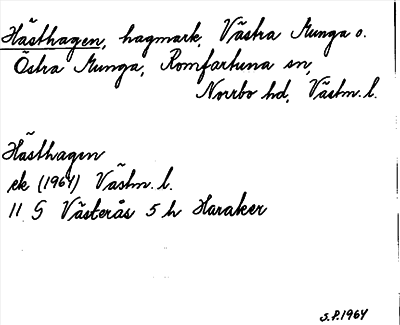 Hästhagen, hagmark, Västra Munga o.
Östra Munga, Romfartuna sn,
Norrbo hd, Västm. l.
Hästhagen
ek (1964) Västm. l.
11 G Västerås 5 h Haraker
S.P. 1964